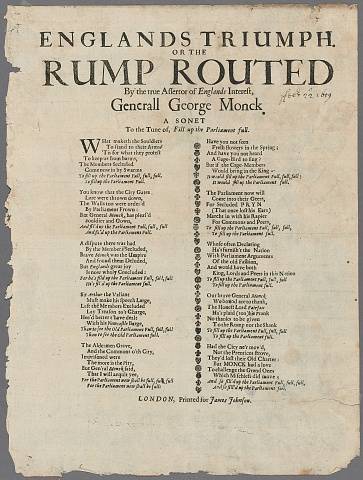 ENGLANDS TRIUMPH.
OR THE
RUMP ROUTED
By the true Assertor of Englands Interest,
Generall George Monck
A SONET
To the Tune of, Fill up the Parliament full.
WHat maketh the Souldiers
To stand to their Arms?
To keep us from harms,
The Members secluded
Come now in by Swarms
To fill up the Parliament full, full, full
To fill up the Parliament full.
You know that the City Gates
Late were thrown down,
By Parliament Frown:
But General Monck, has pleas'd
Souldier and Gown,
And fil'd up the Parliament full, full, full,
And fil'd up the Parliament full.
A dispute there was had
By the Members secluded,
Brave Monck was the Umpire
And found them Deluded,
But Englands great joy
Is now wholy Concluded:
For he's fill'd up the Parliament full, full, full
Sir Arthur the Valiant
Must make his speech Large,
Left the Members Excluded
Lay Treason to's Charge,
Had better have dealt
With his Newcastle Barge,
The Aldermen Grove,
And the Common o'th City,
Imprisoned were
The more is the Pity,
But General Monck said,
That I will acquit yee,
For the Parliament now shall be full, full, full
For the Parliament now shall be full.
Have you not seen
Fresh flowers in the Spring;
And have you not heard
A Cage-Bird to sing?
But if the Cage-Members
Would bring in the King
It would fill up the Parliament full, full, full:
It would fill up the Parliament full.
The Parliament now will
Come into their Geers,
For Secluded PRYN
(That once lost his Ears)
Marcht in with his Rapier
For Commons and Peers,
To fill up the Parliament full, full, full,
To fill up the Parliament full.
Whose often Declaring
Has furnish't the Nation
With Parliament Arguments
Of the old Fashion,
And would have both
King, Lords and Peers in this Nation
To fill up the Parliament full, full, full
To fill up the Parliament full.
Our brave General Monck,
The Honest Lord Fairfax
No thanks to be given
To the Rump nor the Shank
To fill up the Parliament full, full, full
To fill up the Parliament full.
Had the City ne'r mov'd,
Nor the Prentices strove,
They'd lost their Old Charter:
But MONCK had a love
To challenge the Grand Ones
Which Mischiefs did move;
And so fill'd up the Parliament full, full, full,
LONDON, Printed for James Johnson.